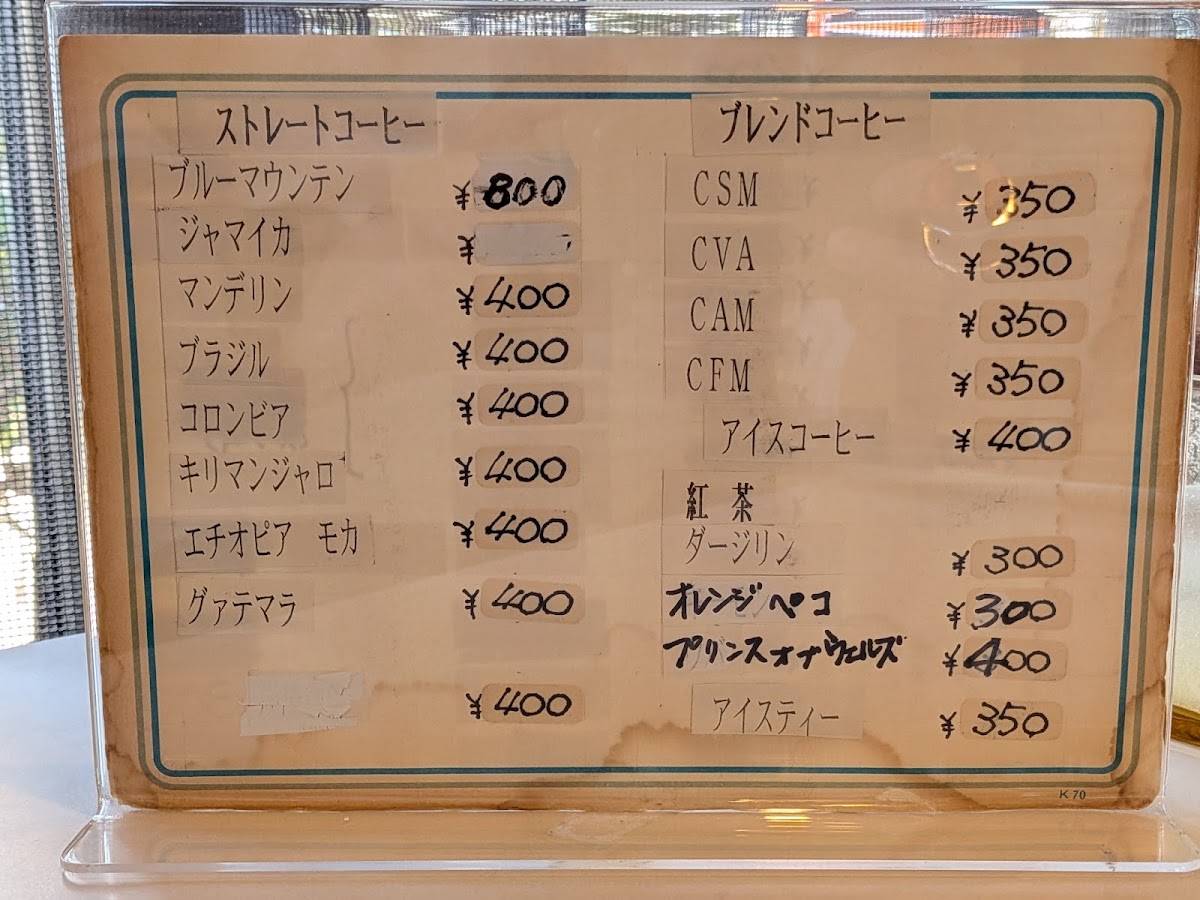 ストレートコーヒー
ブルーマウンテン ¥800
ジャマイカ ¥
マンデリン ¥400
ブラジル ¥400
コロンビア ¥400
キリマンジャロ ¥400
エチオピア モカ ¥400
グァテマラ ¥400
¥400
ブレンドコーヒー
CSM ¥350
CVA ¥350
CAM ¥350
CFM ¥350
アイスコーヒー ¥400
紅 茶
ダージリン ¥300
オレンジペコ ¥300
プリンスオブウェルズ ¥400
アイスティー ¥350
K 70